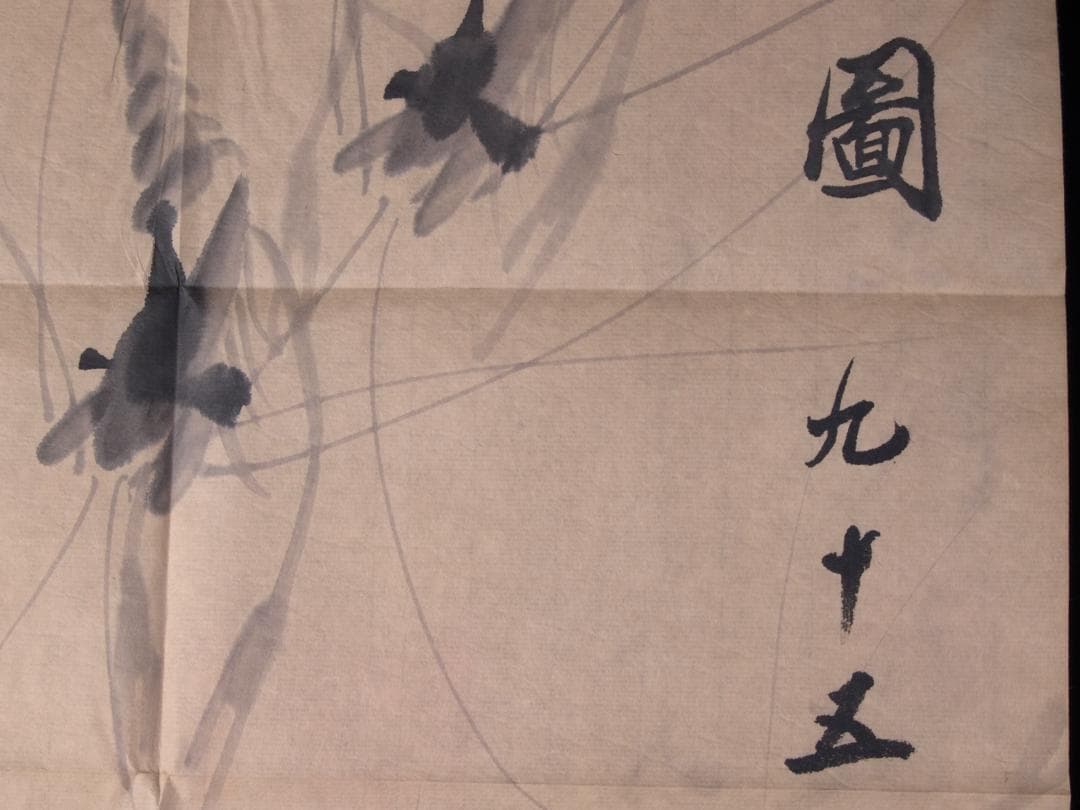 圖九十五